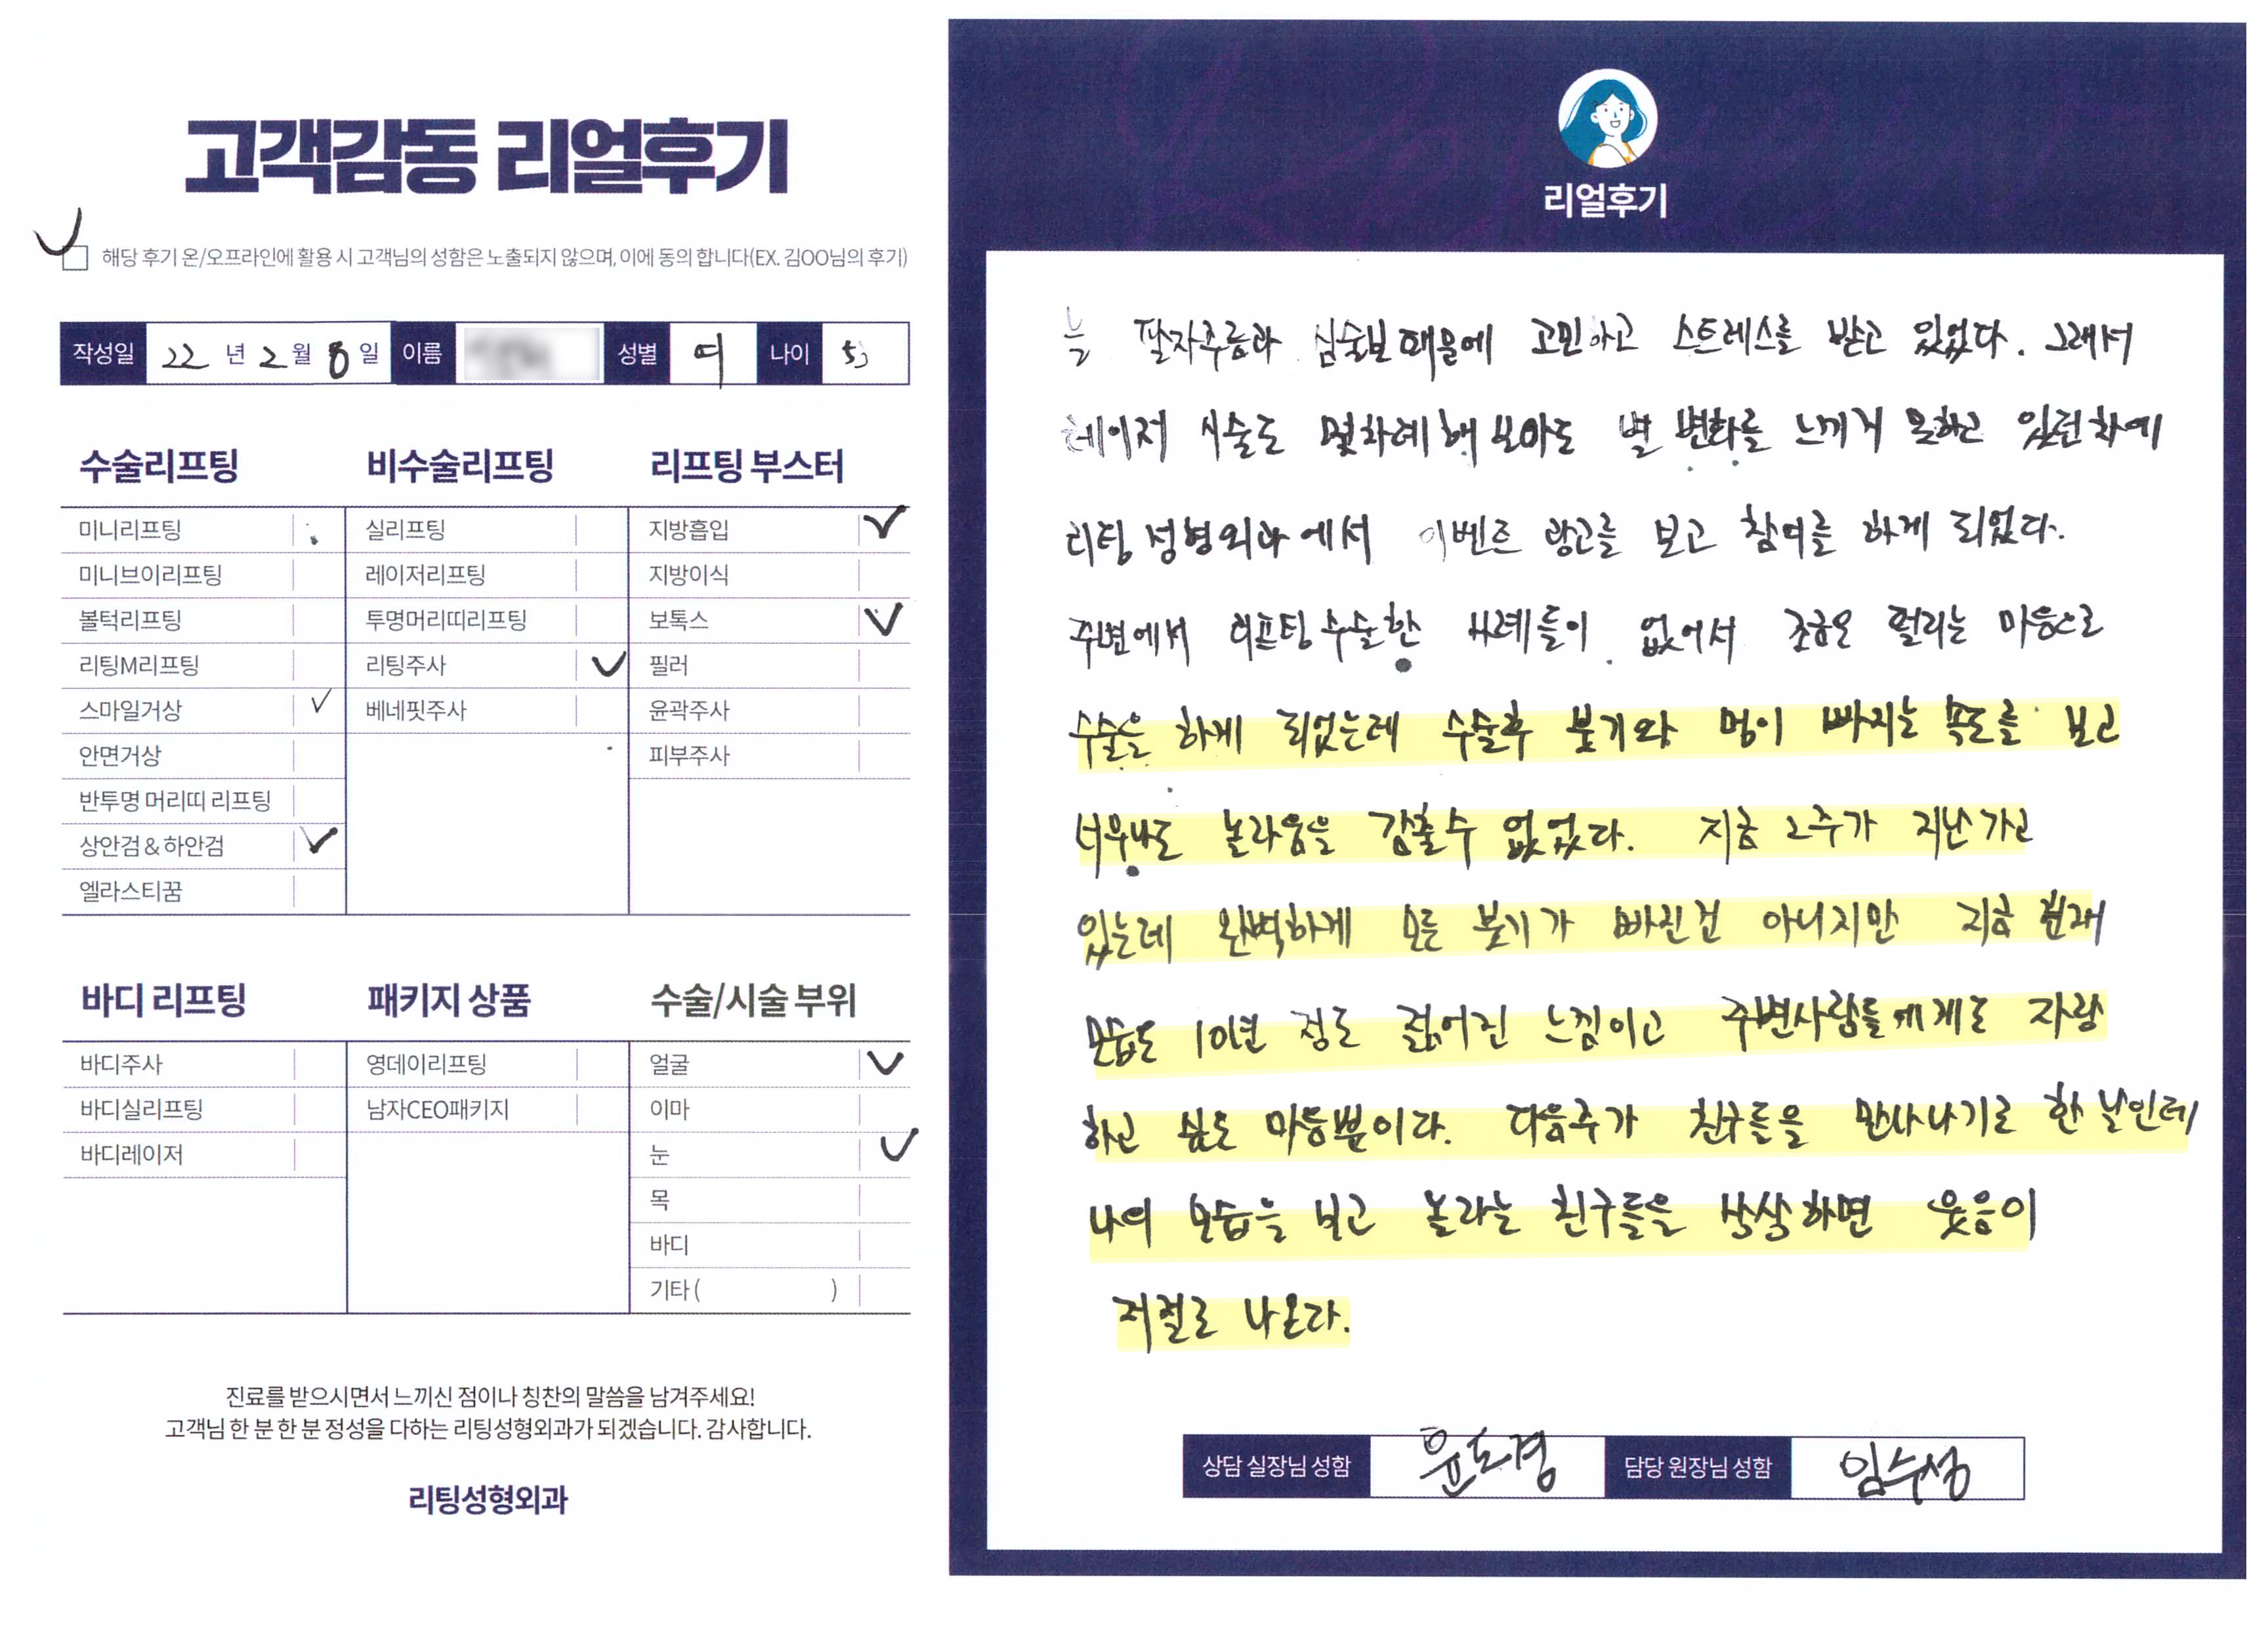 고객감동 리얼후기
해당 후기 온/오프라인에 활용 시 고객님의 성함은 노출되지 않으며, 이에 동의 합니다(EX. 김OO님의 후기)
작성일 22 년 2 월 8 일 이름 성별 여 나이
수술리프팅
미니리프팅
미니브이리프팅
볼턱리프팅
리팅M리프팅
스마일거상
안면거상
반투명 머리띠 리프팅
상안검&하안검
엘라스티꿈
비수술리프팅
실리프팅
레이저리프팅
투명머리띠리프팅
리팅주사
베네핏주사
리프팅 부스터
지방흡입
지방이식
보톡스
필러
윤곽주사
피부주사
바디 리프팅
바디주사
바디실리프팅
바디레이저
패키지 상품
영데이리프팅
남자CEO패키지
수술/시술 부위
얼굴
이마
눈
목
바디
기타 ( )
진료를 받으시면서 느끼신 점이나 칭찬의 말씀을 남겨주세요!
고객님 한 분 한 분 정성을 다하는 리팅성형외과가 되겠습니다. 감사합니다.
리팅성형외과
리얼후기
늘 팔자주름과 심술보 때문에 고민하고 스트레스를 받고 있었다. 그래서
레이저 시술도 몇차례 해 보아도 별 변화를 느끼게 못하고 있던차에
리팅 성형외과에서 이벤트 광고를 보고 참여를 하게 되었다.
주변에서 리프팅 수술한 사례들이 없어서 조금은 떨리는 마음으로
수술을 하게 되었는데 수술후 붓기와 멍이 빠지는 속도를 보고
너무나도 놀라움을 감출수 없었다. 지금 2주가 지난가고
있는데 완벽하게 모든 붓기가 빠진건 아니지만 지금 현재
모습도 10년 정도 젊어진 느낌이고 주변사람들에게도 자랑
하고 싶은 마음뿐이다. 다음주가 친구들을 만나기로 한 날인데
나의 모습을 보고 놀라는 친구들을 상상하면 웃음이
저절로 나온다.
상담 실장님 성함 윤도경 담당 원장님 성함 임수성